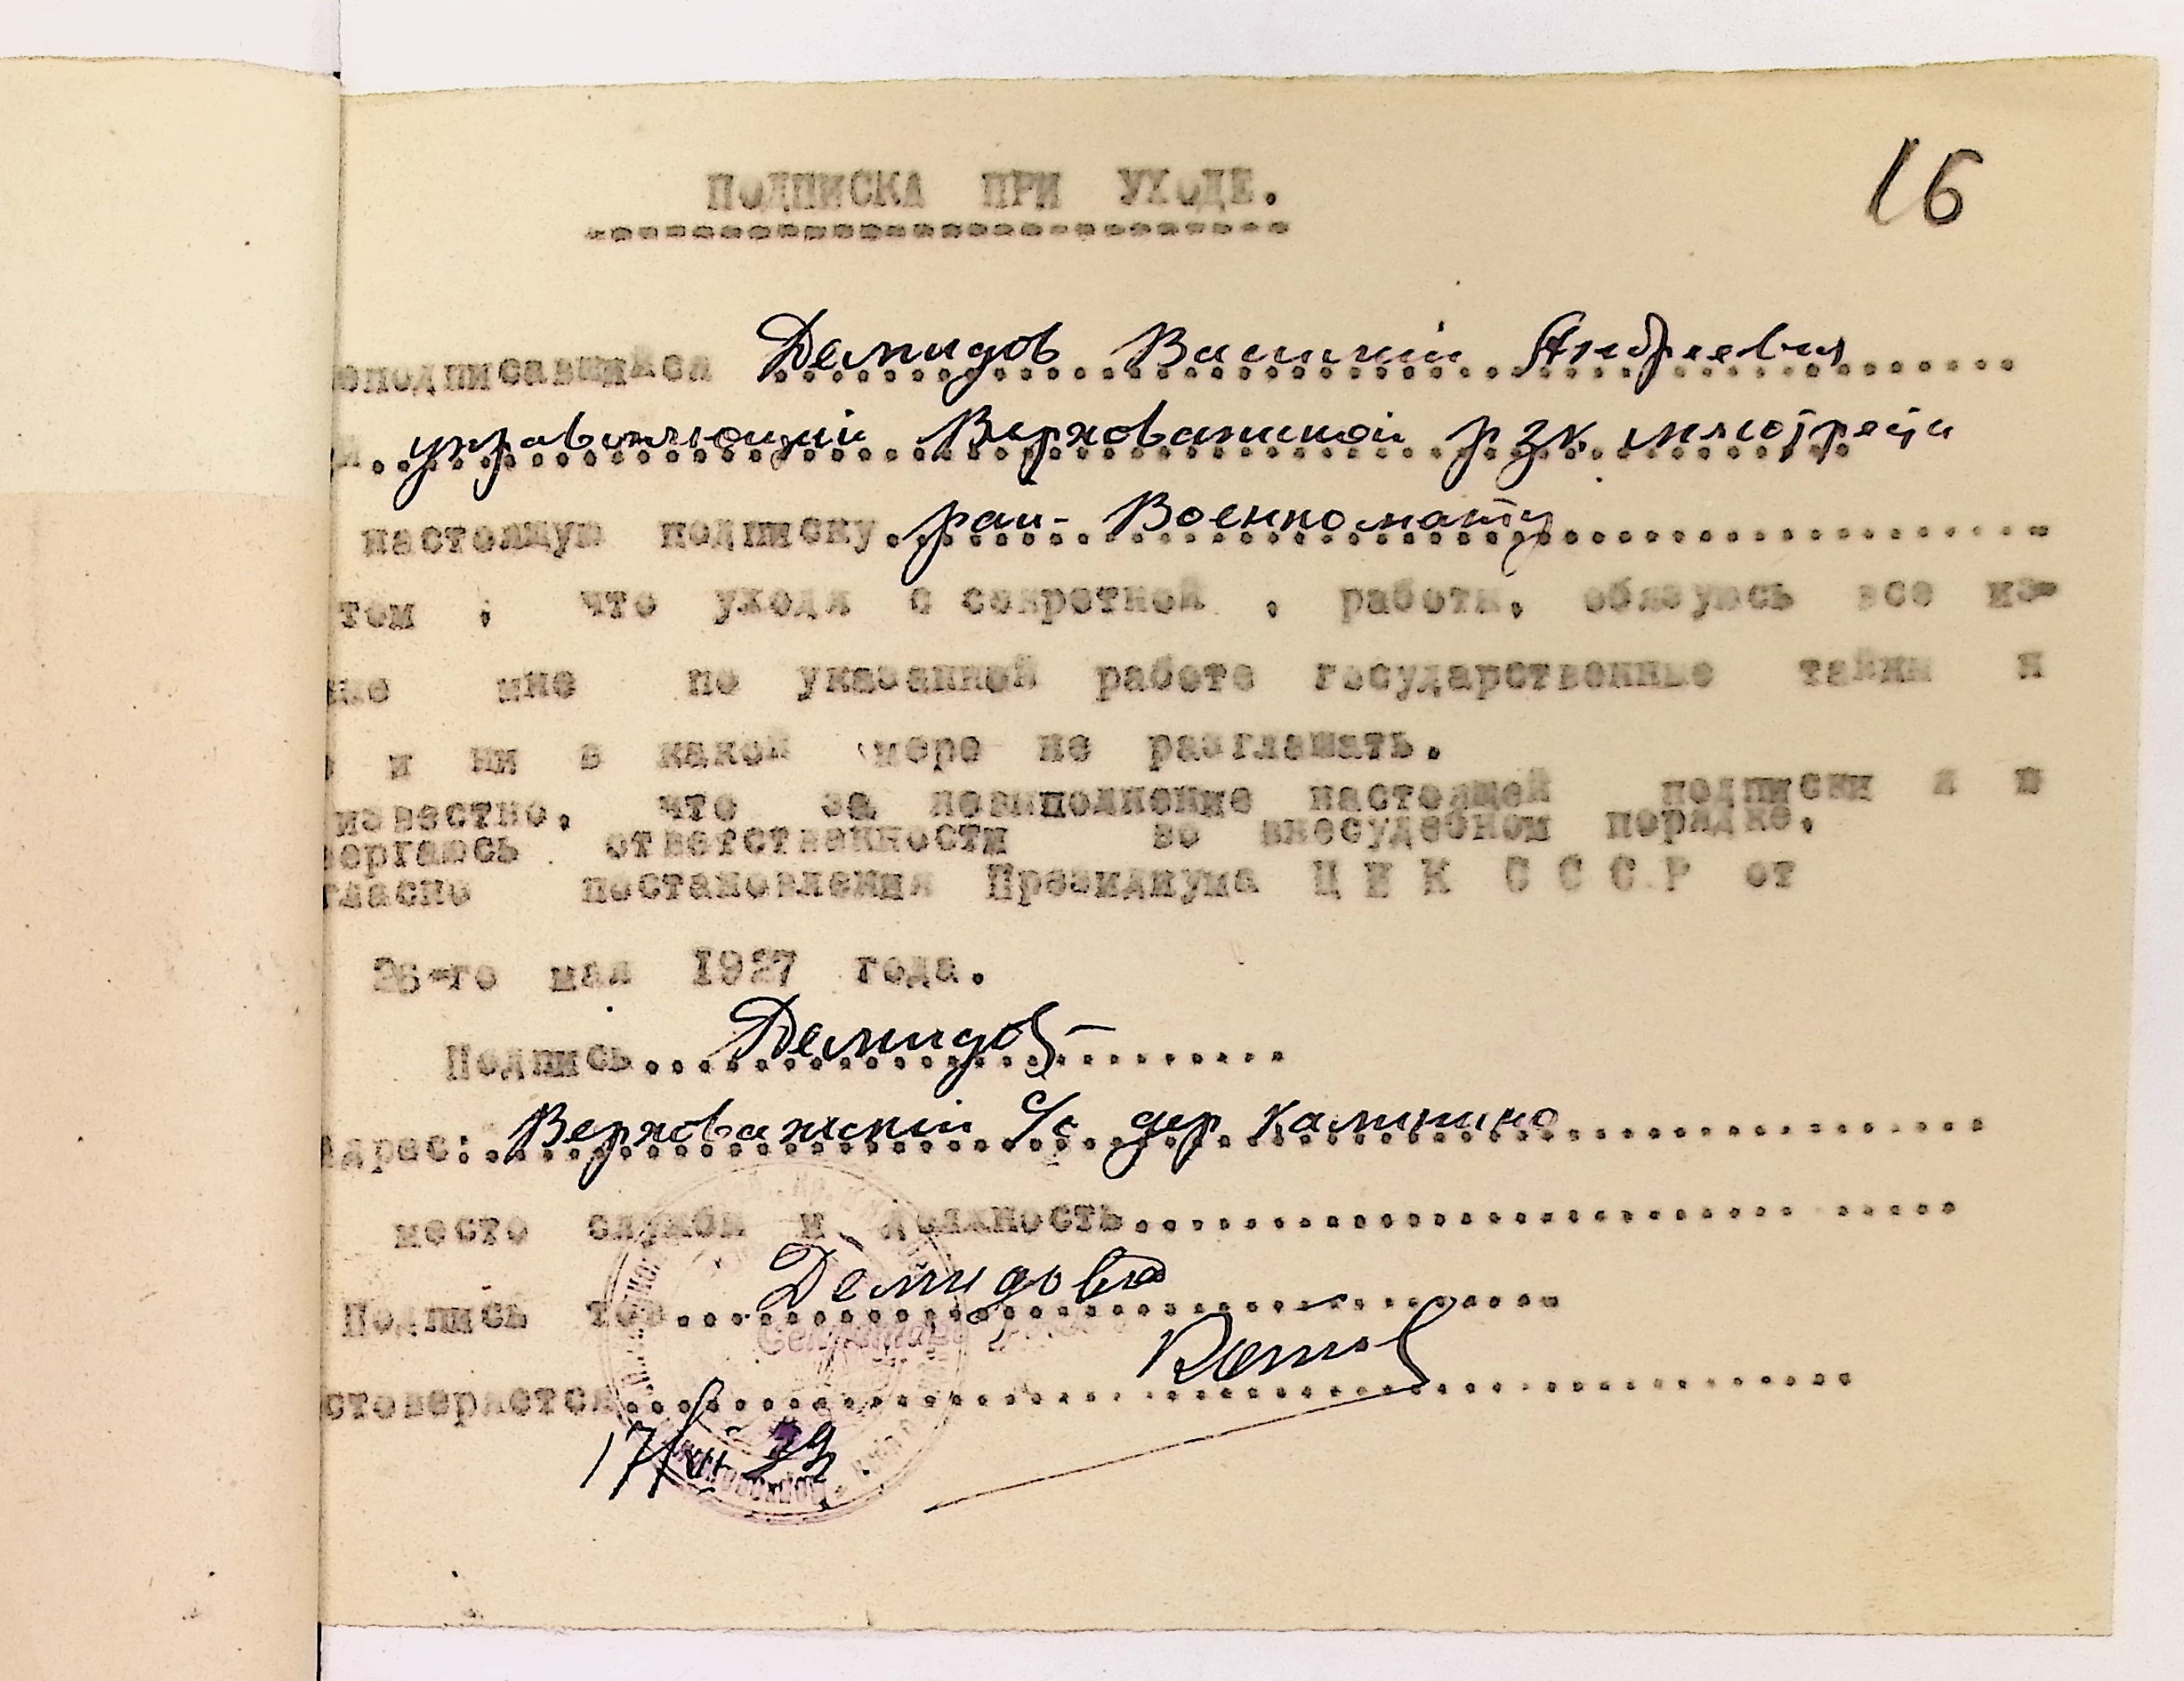 16
ПОДПИСКА ПРИ УХОДЕ.
еподписавшийся Демидов Василий Андреевич
управляющий Верховажской рзк мясотреста
настоящую подписку рай- Военкомату
том , что уходя с секретной , работы, обязуюсь все из-
ные мне по указанной работе государственные тайны н
и ни в какой мере не разглашать.
известно, что за невыполнение настоящей подписки я в
вергаюсь ответственности во внесудебном порядке,
гласно постановления Президиума Ц И К С С С Р от
26-го мая 1927 года.
Подпись Демидов
Адрес: Верховажский с/с дер Калинино
место службы и должность
Подпись тов. Демидова
Секретарь
стоверяется
17/VII